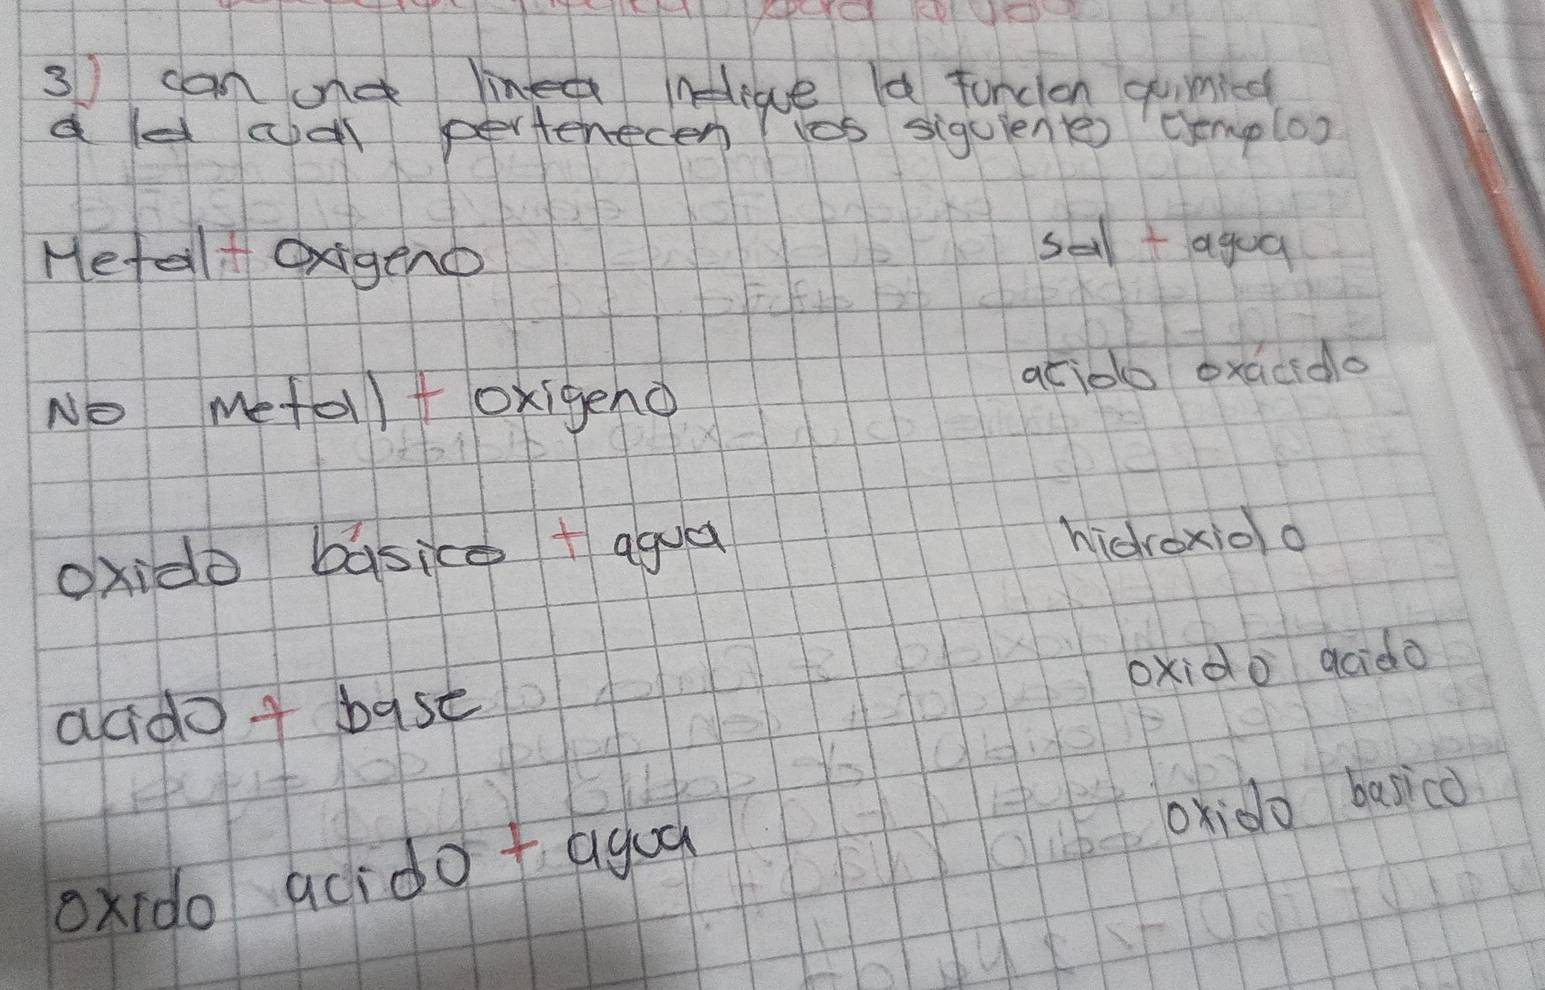 3) con una linea indique la función quimica
a la cual pertenecen los siguientes ejemplos
Metal + Oxigeno
sal + agua
No Metal + oxigeno
acido oxácido
oxido básico + agua
hidroxido
acido + base
oxido acido
oxido basico
oxido acido + agua